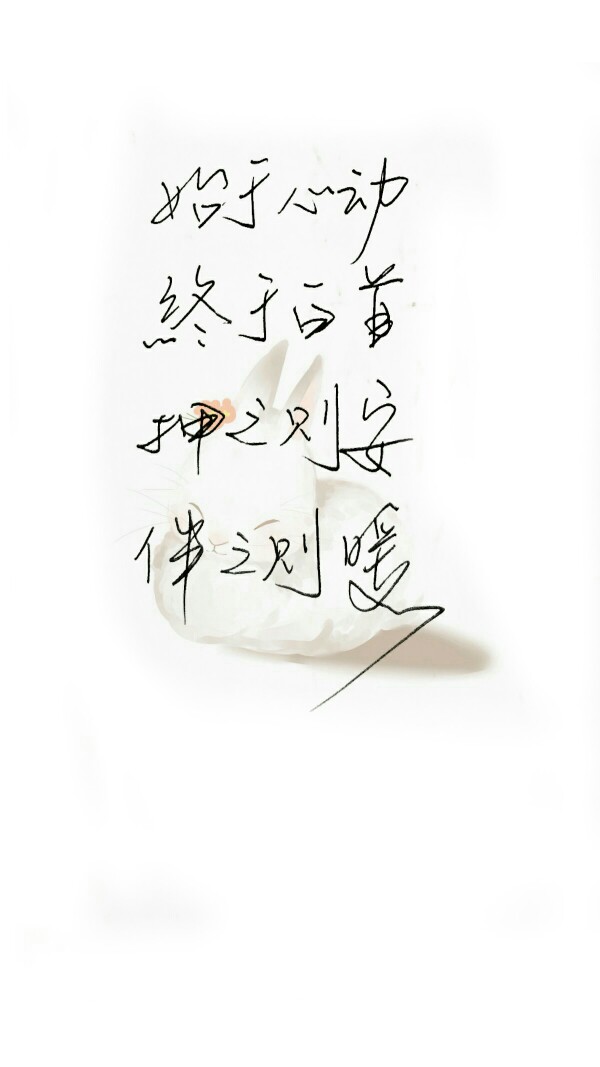 始于心动
終于白首
押之则安
伴之则暖